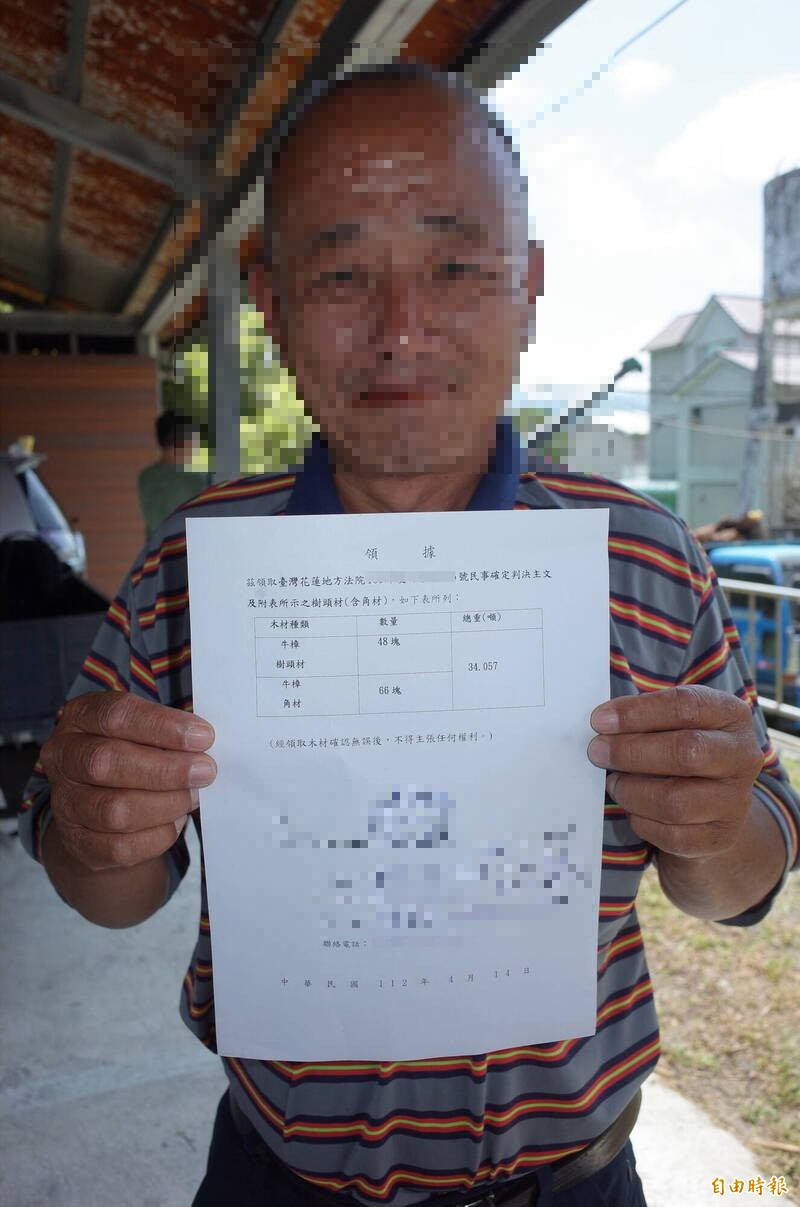 領據
茲領取臺灣花蓮地方法院號民事確定判決主文
及附表所示之樹頭材(含角材)，如下表所列：
木材種類 數量 總重(噸)
牛樟 48塊
樹頭材
34.057
牛樟
66塊
角材
(經領取木材確認無誤後，不得主張任何權利。)
聯絡電話：
中華民國112年4月14日
自由時報